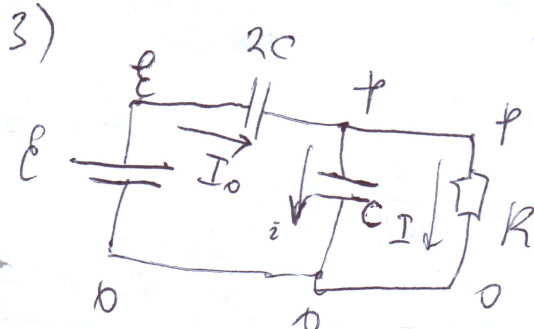 3)
2C
ℰ
φ
φ
ℰ
I₀
i
C
I
R
0
0
0